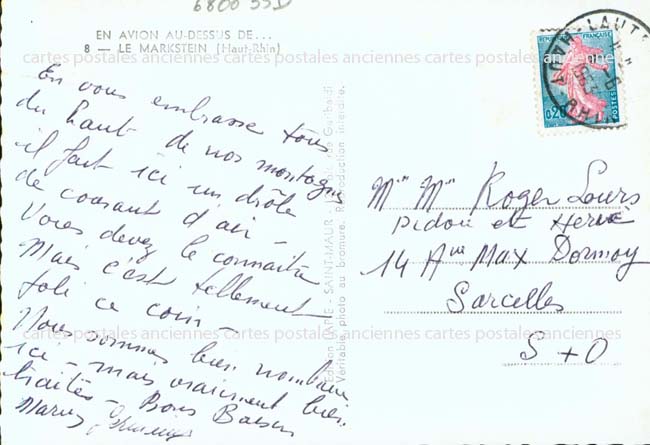 6800 55D
EN AVION AU-DESSUS DE...
8 — LE MARKSTEIN (Haut-Rhin)
cartes postales anciennes cartes postales anciennes cartes postales anciennes
En vous embrasse tous
du haut de nos montagnes
il fait ici un drôle
de courant d'air -
Vous devez le connaitre
Mais c'est tellement
joli ce coin -
Nous sommes bien nombreux
ici - mais vraiment bien
traités - Bons Baisers
Edition - SAINT-MAUR
Véritable photo au bromure. Reproduction interdite.
REPUBLIQUE FRANÇAISE
0,20
POSTES
LAUT
RHIN
Mr Mme Roger Louis
Didou et Hervé
14 Ave Max Dormoy
Sarcelles
S + O
cartes postales anciennes cartes postales anciennes cartes postales anciennes